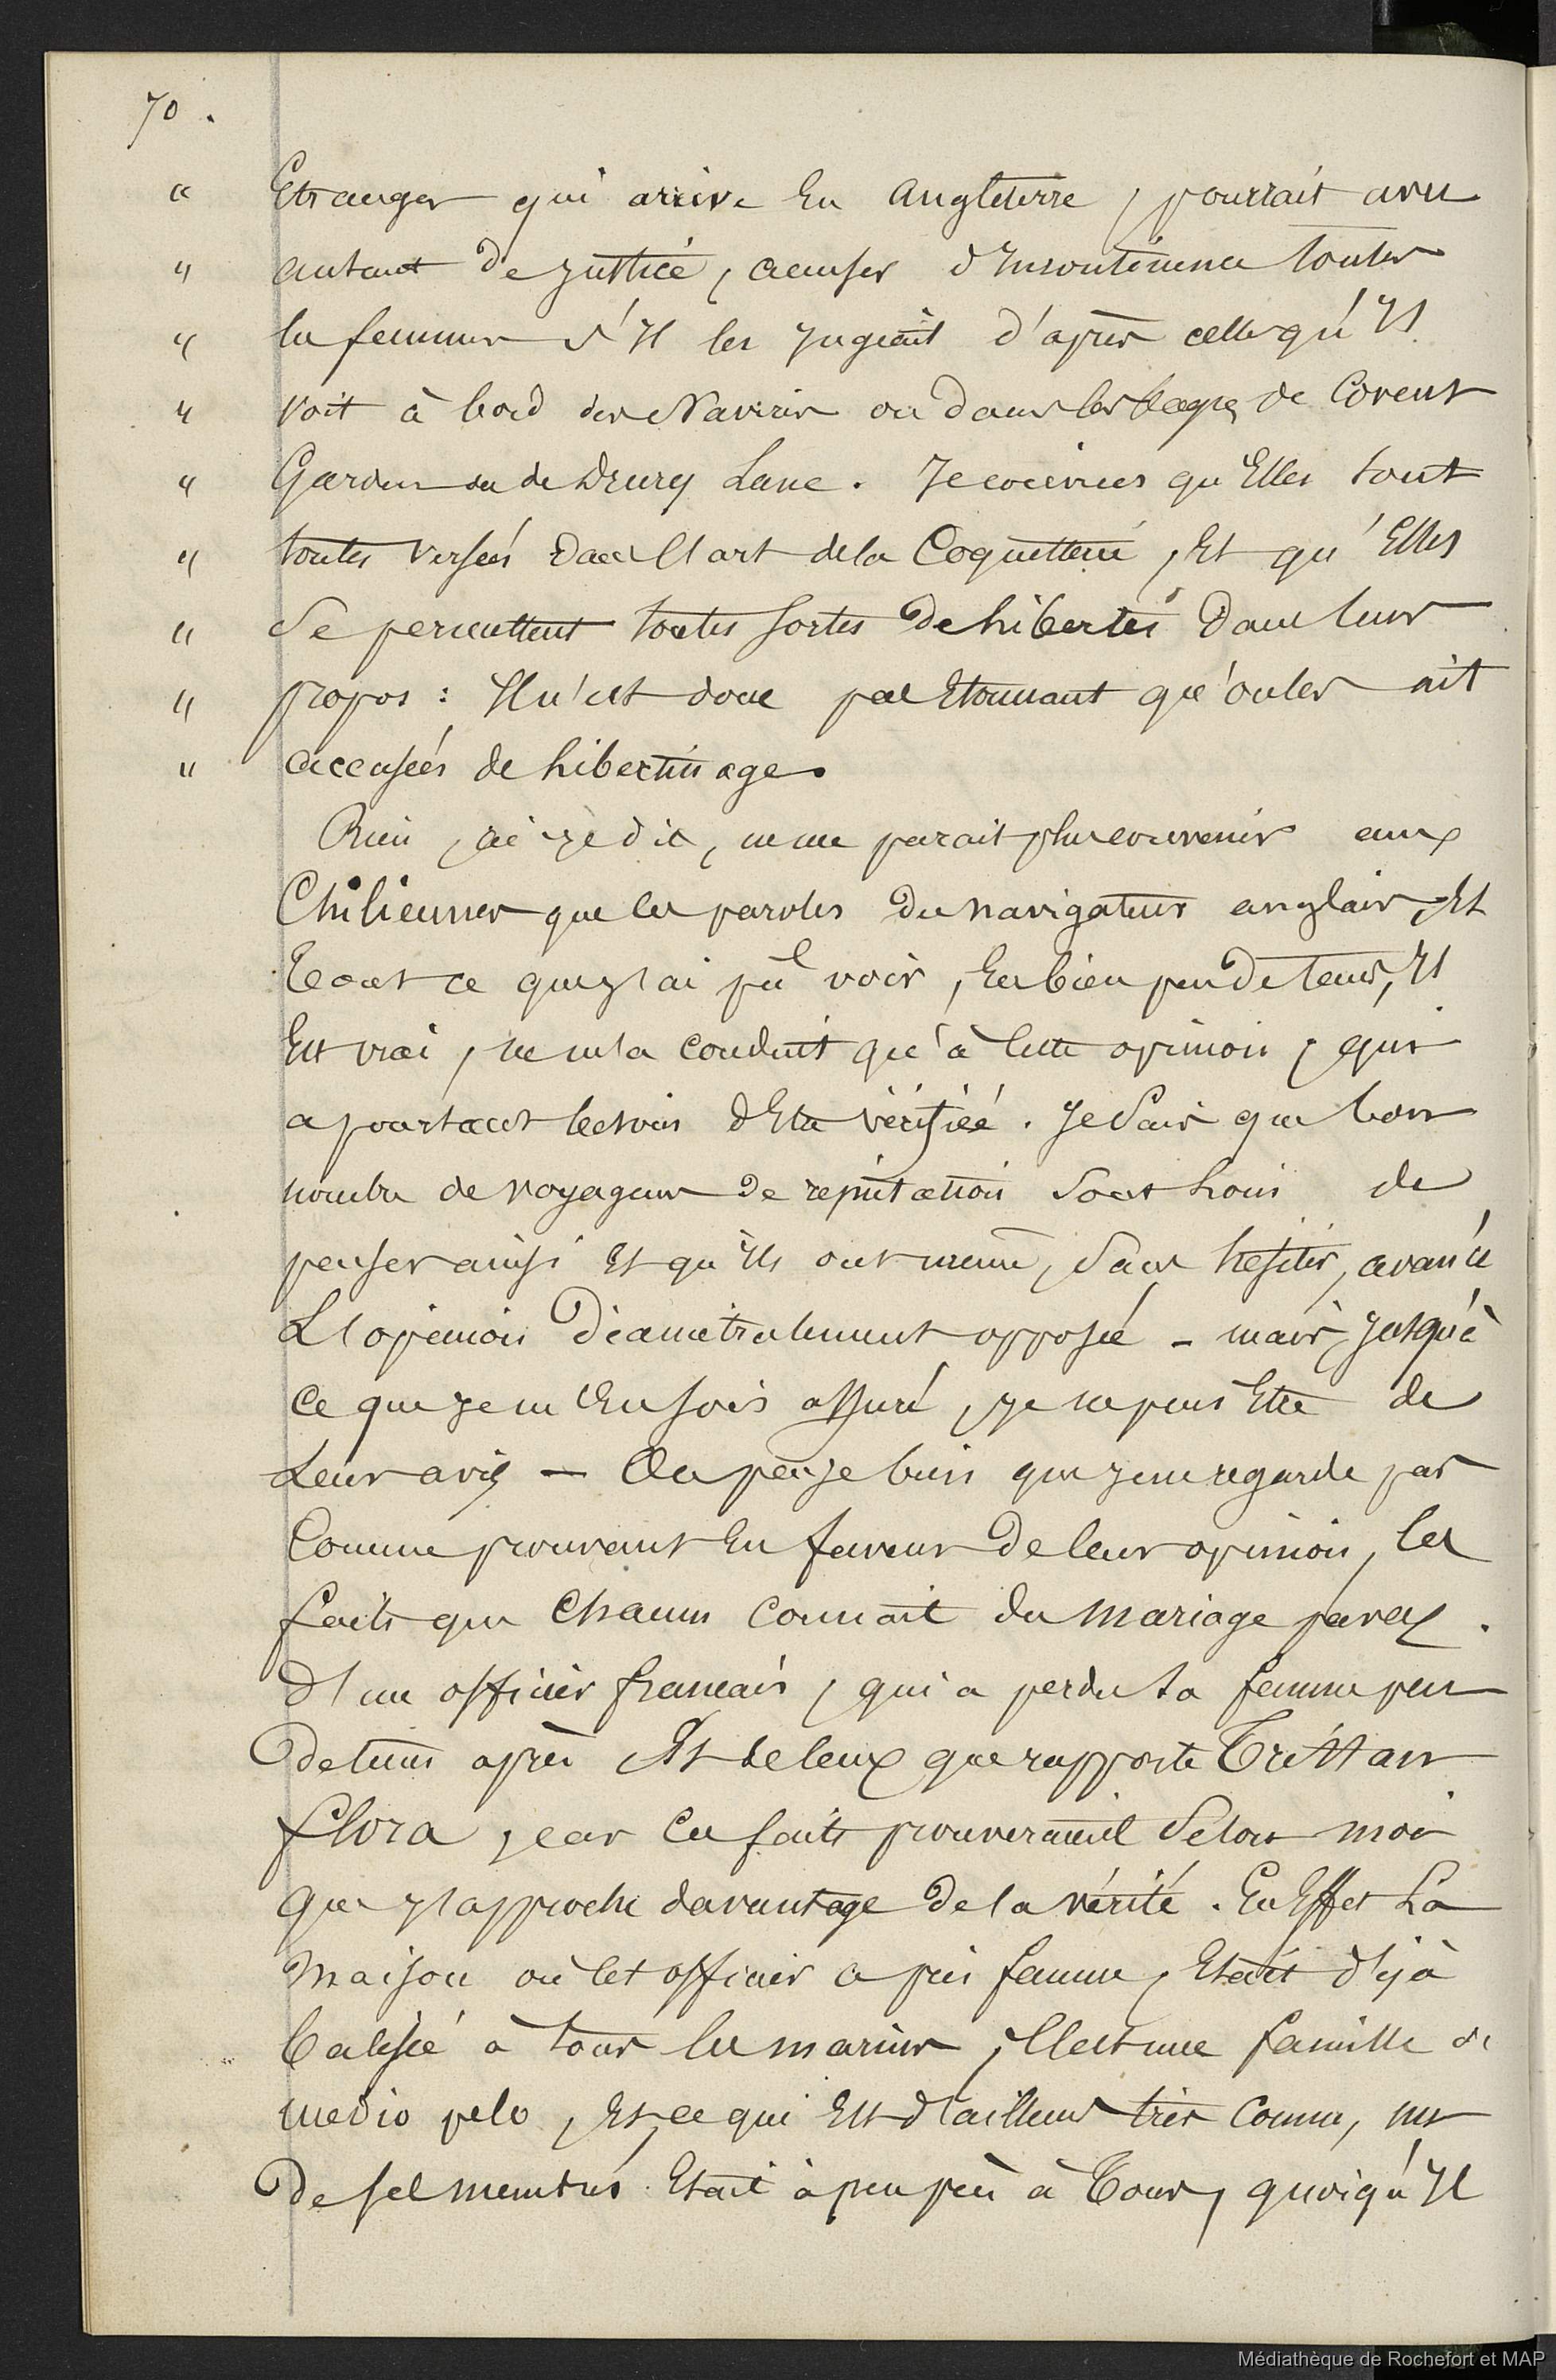 70.
" Etranger qui arrive En Angleterre, pourrait avec
" autant de justice, accuser d'Incontinence toutes
" les femmes s'Il les jugeait d'après celles qu'Il
" voit à bord des Navires ou dans les loges de Covent
" Garden ou de Drury Lane. Je conviens qu'Elles sont
" toutes versées dans l'art de la Coquetterie, Et qu'Elles
" Se permettent toutes sortes de libertés dans leurs
" propos : Il n'est donc pas Etonnant qu'on les ait
" accusées de libertinage.
Rien, ai-je dit, ne me parait plus convenir aux
Chiliennes que les paroles du navigateur anglais, Et
tout ce que j'ai pû voir, En bien peu de tems, Il
Est vrai, ne m'a conduit qu'à cette opinion, qui
a pourtant besoin d'Etre vérifiée. Je Sais que bon
nombre de voyageurs de reputation Sont loin de
penser ainsi Et qu'Ils ont même, Sans hesiter, avancé
L'opinion diametralement opposée - mais, jusqu'à
ce que je m'En sois assuré, je ne puis Etre de
Leur avis — On pense bien que je ne regarde pas
Comme prouvant En faveur de leur opinion, les
faits que Chacun connait du mariage
d'un officier français, qui a perdu sa femme peu
de tems après Et de ceux que rapporte Tristan
flora, car ces faits prouveraient Selon moi
que j'approche davantage de la vérité. En Effet La
maison où cet officier a pris femme, Etait déjà
balisée à tous les marins, c'est une famille de
medio pelo, Et, ce qui Est d'ailleurs très connu, un
de ses membres Etait à peu près à tous, quoiqu'Il